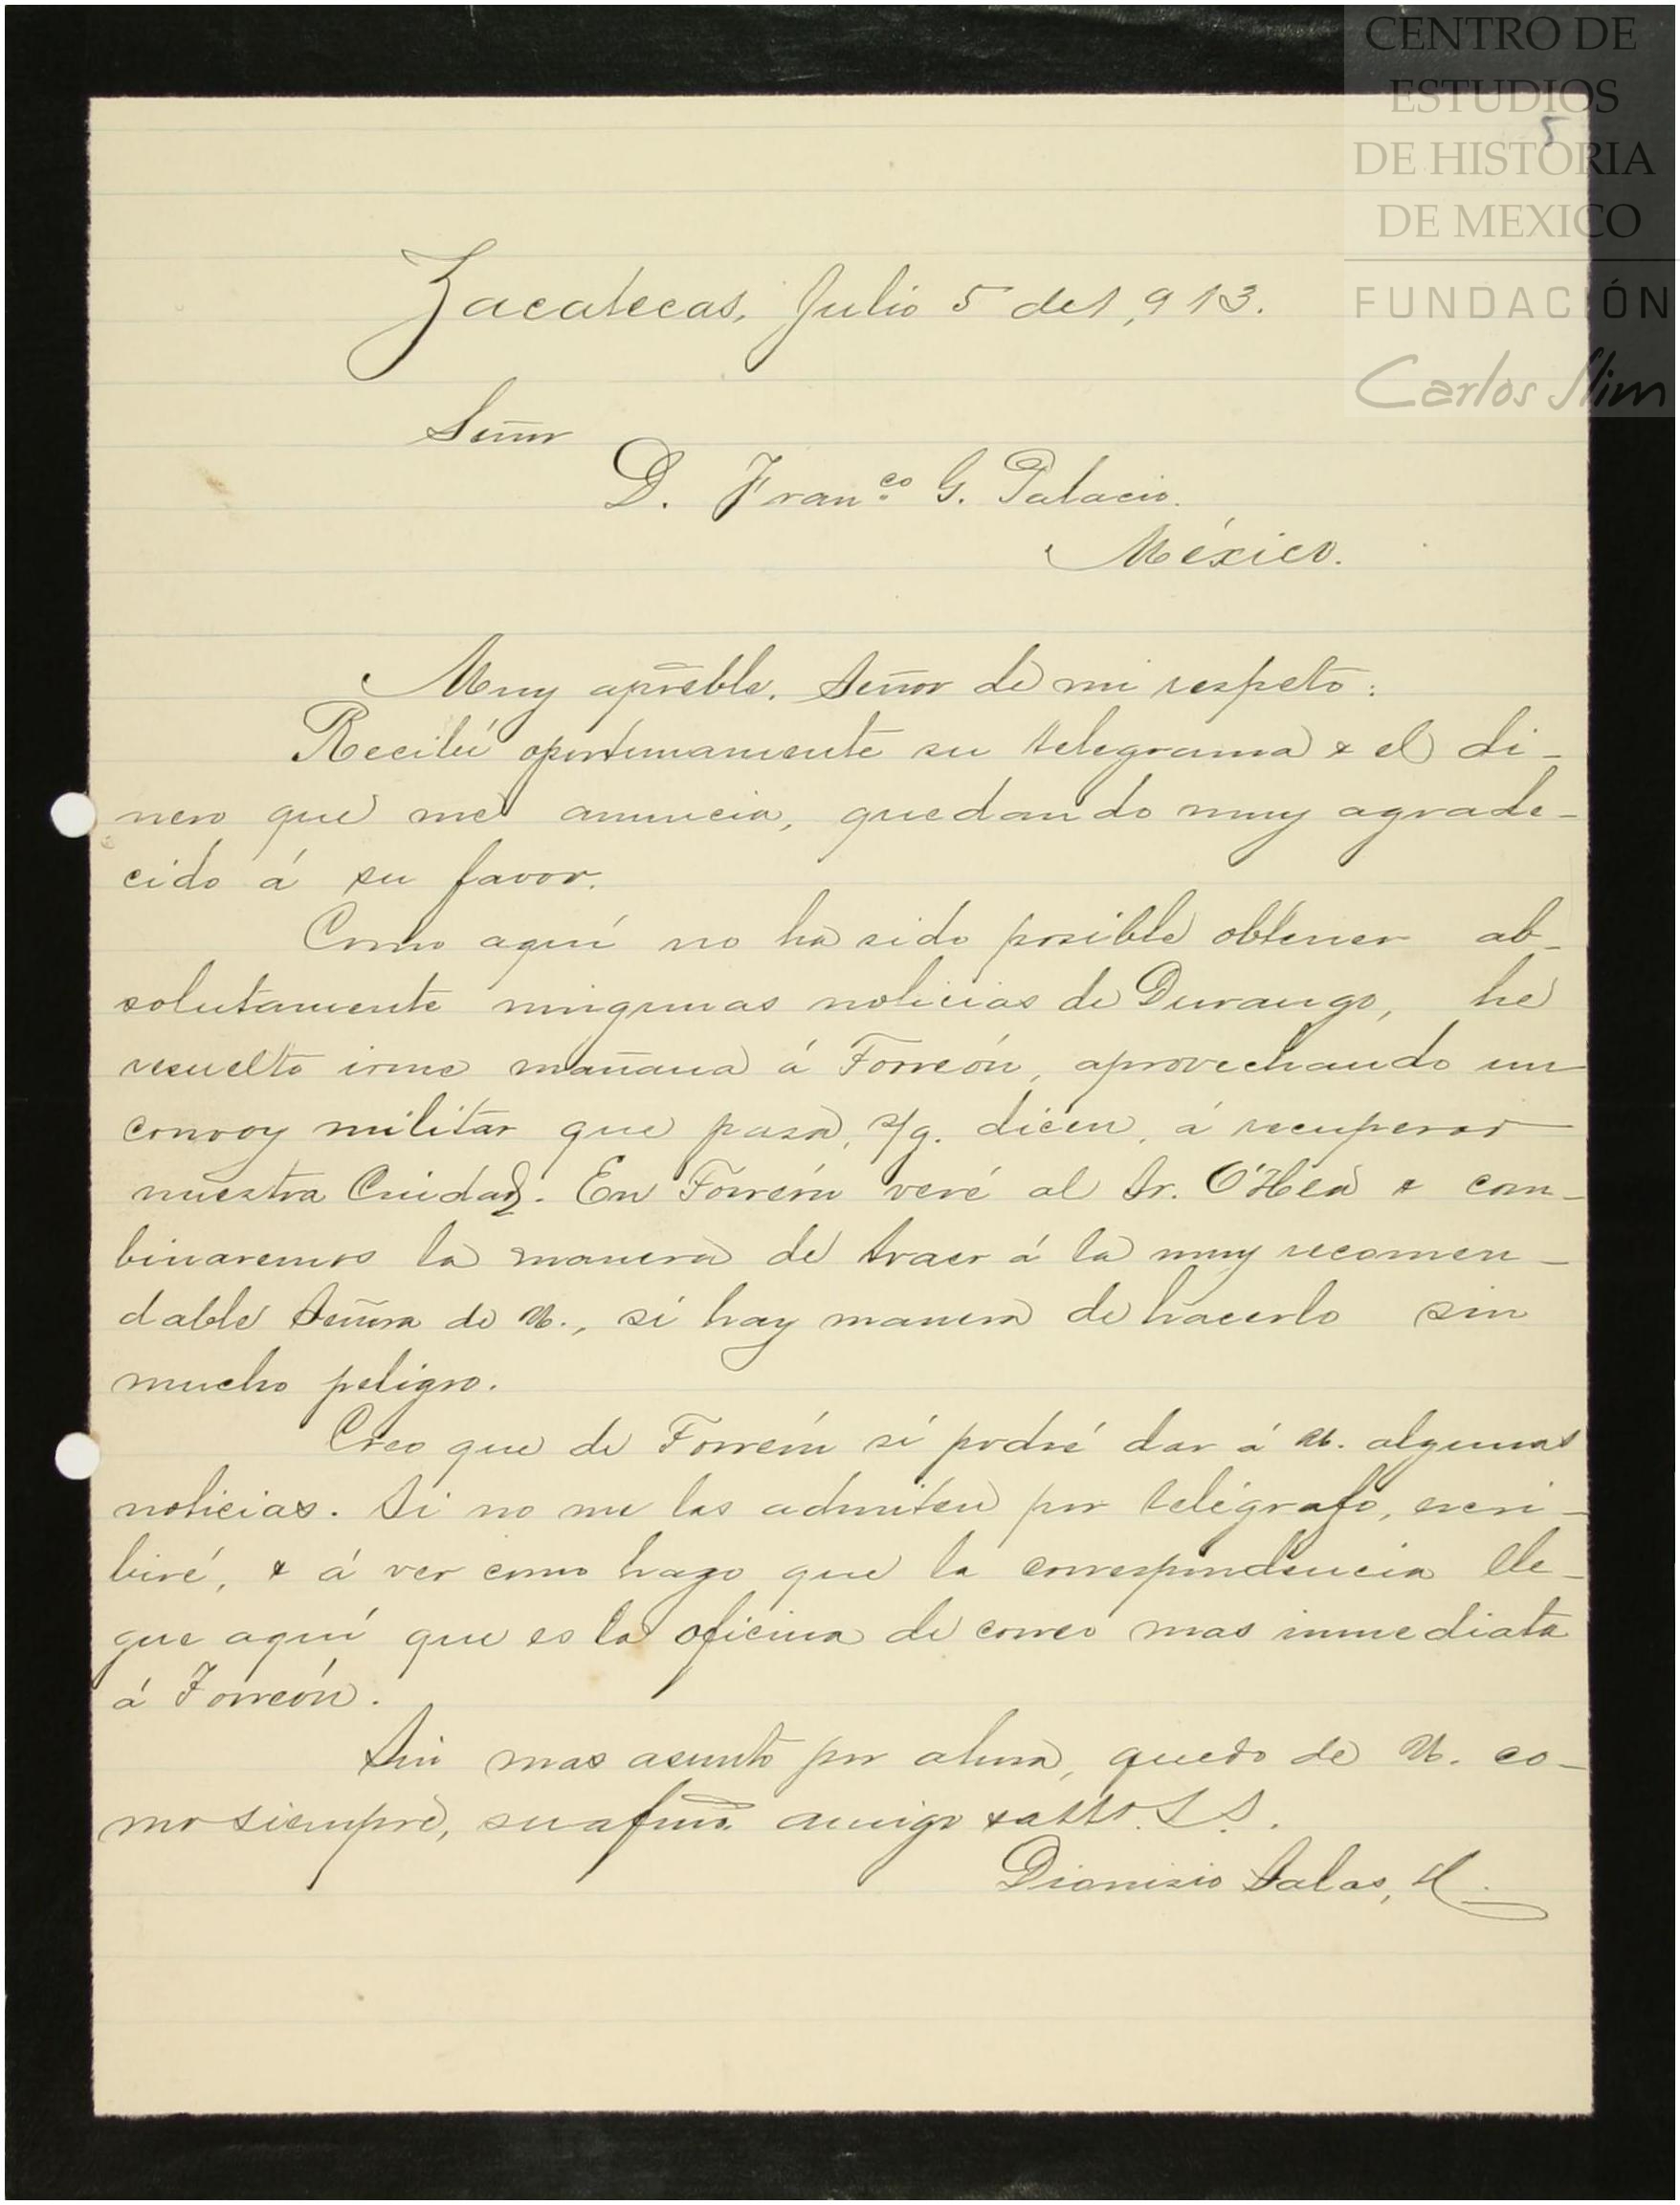 CENTRO DE
ESTUDIOS
DE HISTORIA
DE MEXICO
FUNDACIÓN
Carlos Slim
5
Zacatecas, Julio 5 de 1,913.
Señor
D. Fran.co G. Palacio.
México.
Muy apreble. Señor de mi respeto:
Recibí oportunamente su telegrama & el di-
nero que me anuncia, quedando muy agrade-
cido á su favor.
Como aquí no ha sido posible obtener ab-
solutamente ningunas noticias de Durango, he
resuelto irme mañana á Torreón, aprovechando un
convoy militar que pasa, s/g. dicen, á recuperar
nuestra Ciudad. En Torreón veré al Sr. O'Hea & com-
binaremos la manera de traer á la muy recomen-
dable Señora de U., si hay manera de hacerlo sin
mucho peligro.
Creo que de Torreón sí podré dar á U. algunas
noticias. Si no me las admiten por telégrafo, escri-
biré, & á ver como hago que la correspondencia lle-
gue aquí que es la oficina de correo mas inmediata
á Torreón.
Sin mas asunto por ahora, quedo de U. co-
mo siempre, su afmo. amigo & atto. S. S.
Dionisio Salas, H.